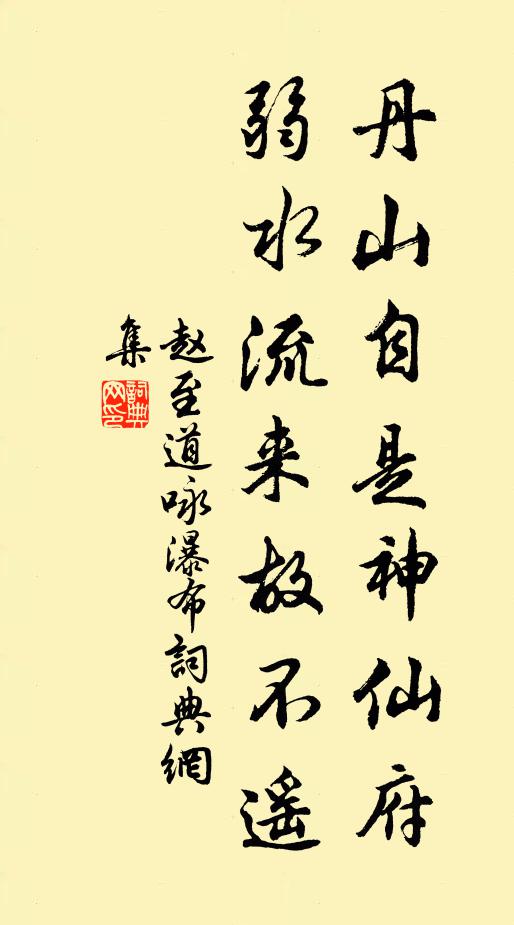 丹山自是神仙府
弱水流来故不遥
赵至道咏瀑布詞典網
集
詞典网印